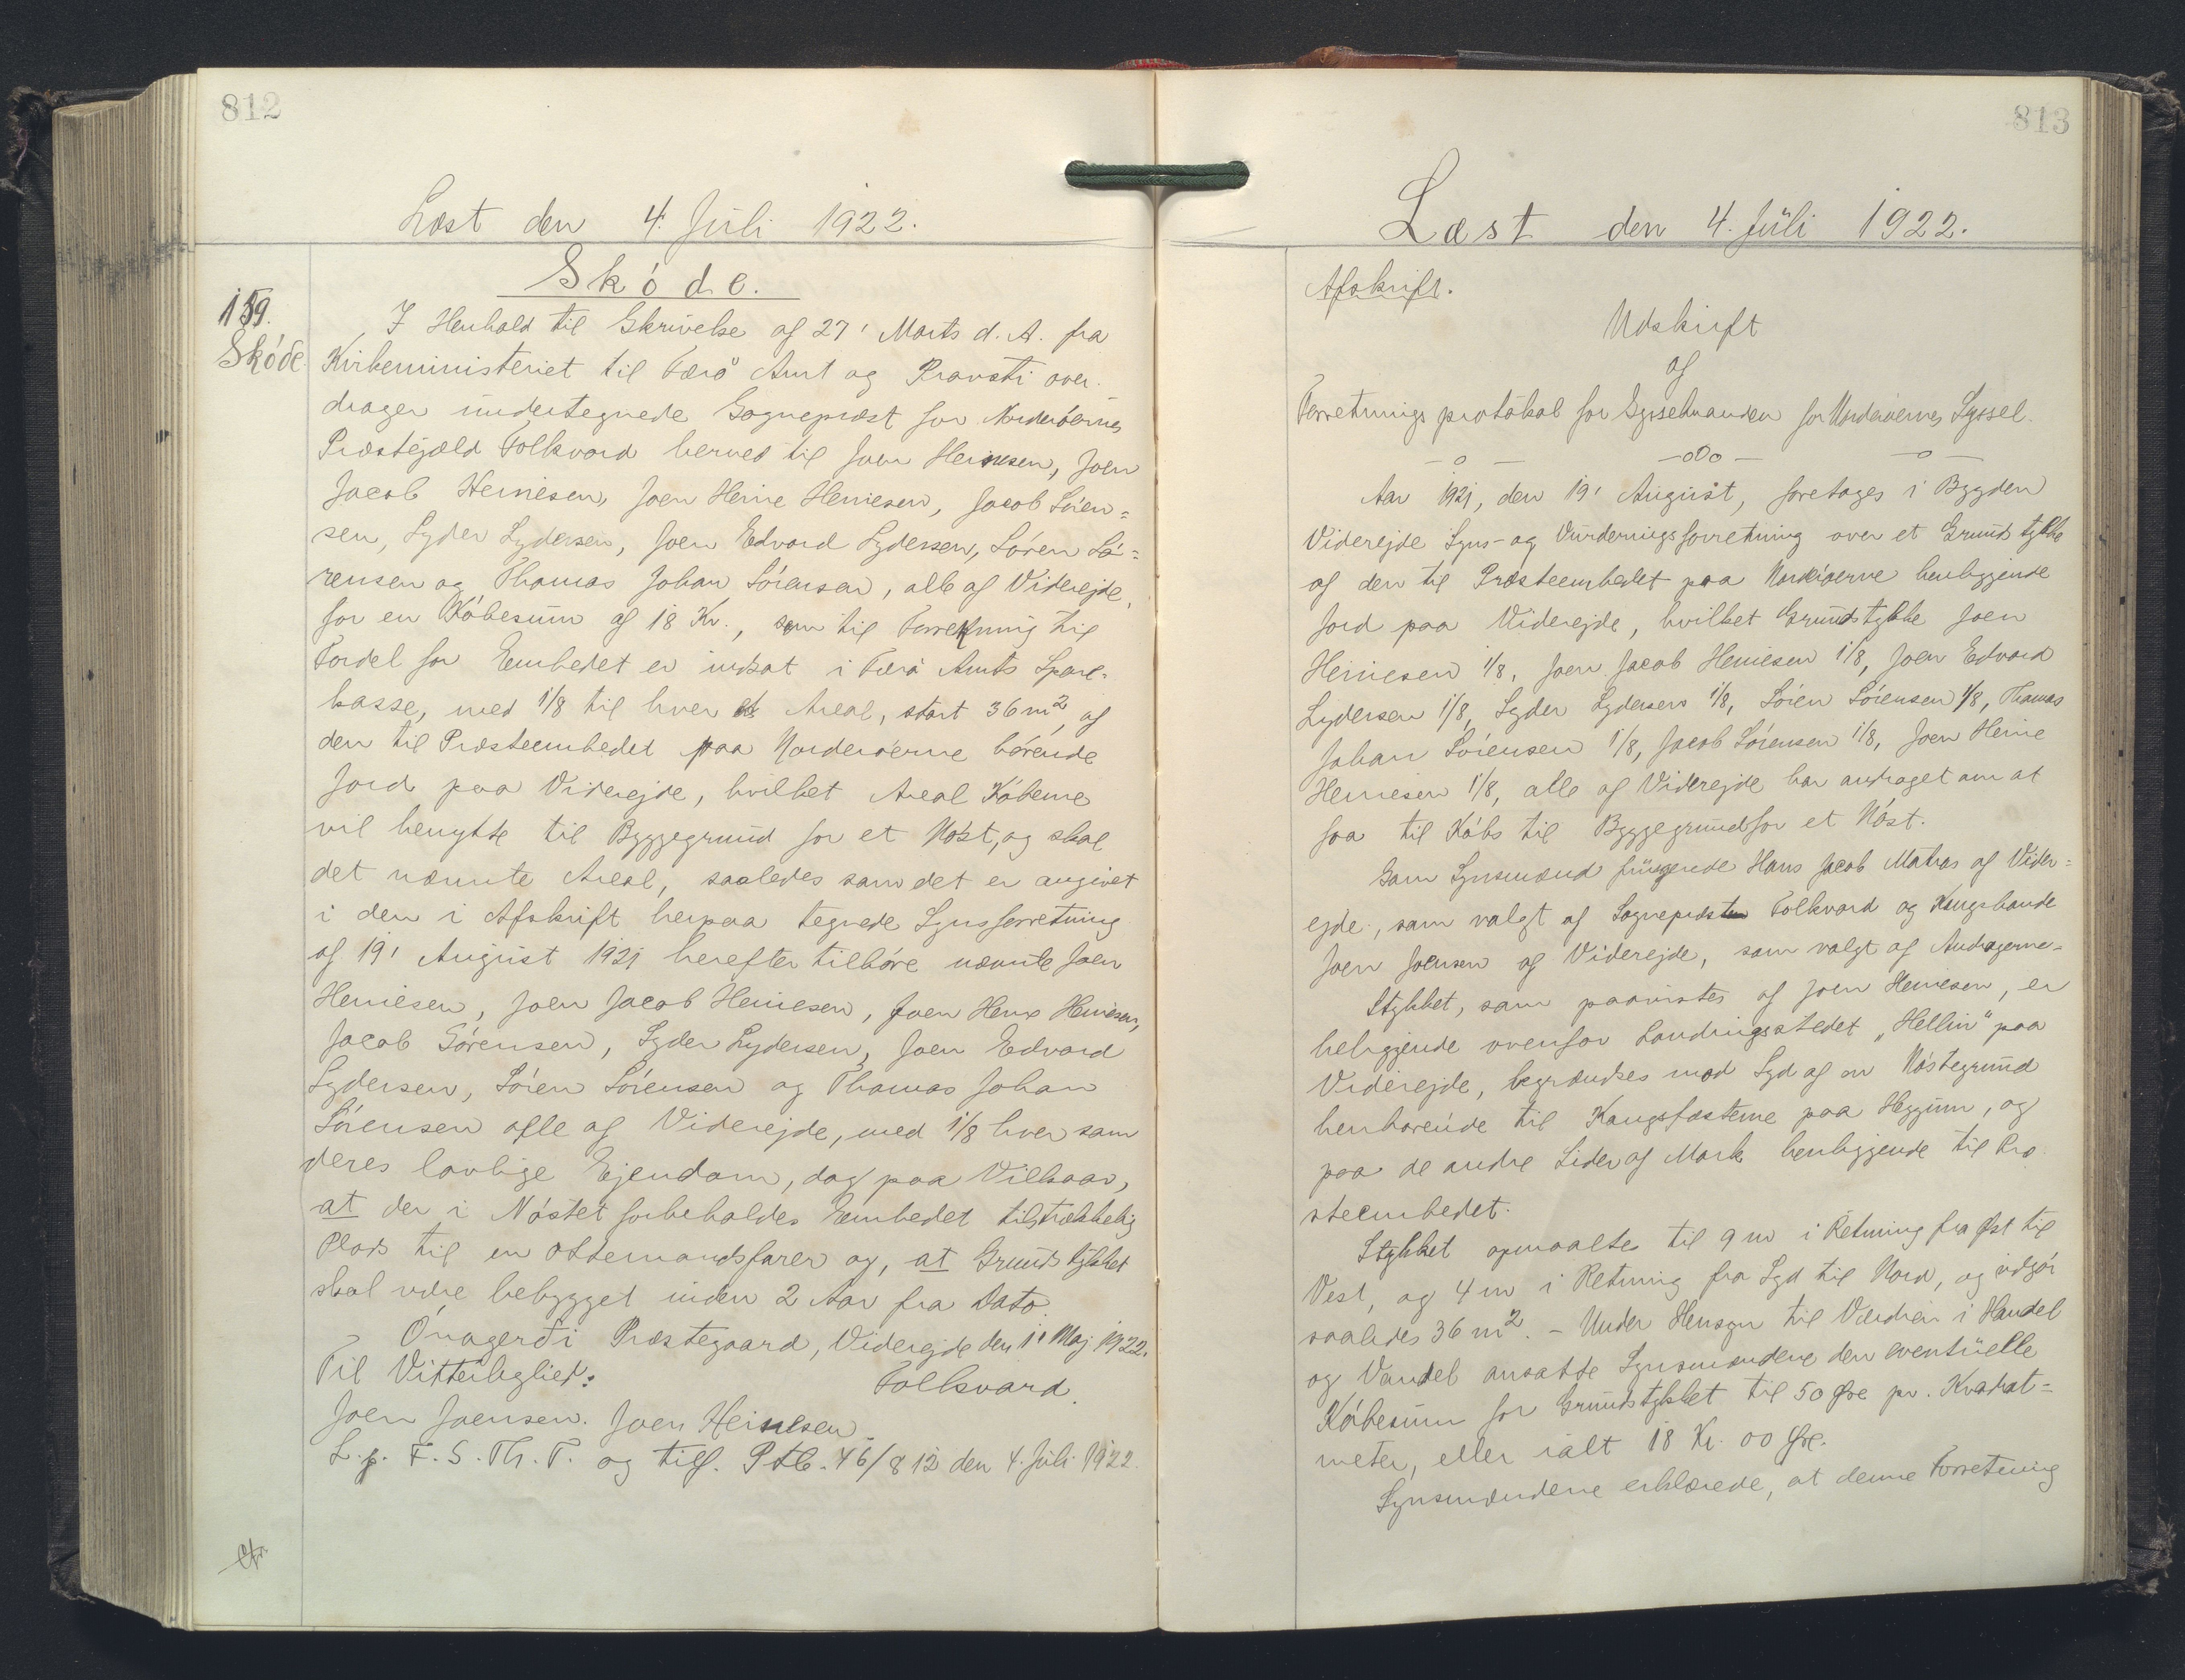 812
Læst den 4. Juli 1922.
159.
Skóde
Skóde.
I Henhold til Skrivelse af 27' Marts d. A. fra
Kirkeministeriet til Færø Amt og Provsti over-
drager undertegnede Sognepræst for Norderóernes
Præstegjæld Folkvard herved til Joen Heinesen, Joen
Jacob Heinesen, Joen Heine Heinesen, Jacob Sóren=
sen, Lyder Lydersen, Joen Edvard Lydersen, Sóren Só=
rensen og Thomas Johan Sórensen, alle af Viderejde,
for en Kóbesum af 18 Kr., som til Forretning til
Fordel for Embedet er indsat i Færó Amts Spare-
kasse, med 1/8 til hver et Areal, stort 36 m2, af
den til Præsteembedet paa Norderóerne hórende
Jord paa Viderejde, hvilket Areal Kóberne
vil benytte til Byggegrund for et Nóst, og skal
det nævnte Areal, saaledes som det er angivet
i den i Afskrift herpaa tegnede Synsforretning
af 19' August 1921 herefter tilhóre nævnte Joen
Heinesen, Joen Jacob Heinesen, Joen Heine Heinesen,
Jacob Sórensen, Lyder Lydersen, Joen Edvard
Lydersen, Sóren Sórensen og Thomas Johan
Sórensen alle af Viderejde, med 1/8 hver som
deres lovlige Ejendom, dog paa Vilkaar,
at der i Nóstet forbeholdes Embedet tilstrækkelig
Plads til en Ottemandsfarer og, at Grundstykket
skal være bebygget inden 2 Aar fra Dato.
Ónagerði Præstegaard, Viderejde den 1' Maj 1922.
Til Vitterlighed:
Folkvard.
Joen Joensen. Joen Heinesen.
L. p. F. S. Th. T. og tilf. Ptb. 46/812 den 4. Juli 1922.
813
Læst den 4. Juli 1922.
Afskrift.
Udskrift
af
Forretningsprotokol for Sysselmanden for Norderóernes Syssel.
-o- -oOo- -o-
Aar 1921, den 19' August, foretages i Bygden
Viderejde Syns- og Vurderingsforretning over et Grundstykke
af den til Præsteembedet paa Norderóerne henliggende
Jord paa Viderejde, hvilket Grundstykke Joen
Heinesen 1/8, Joen Jacob Heinesen 1/8, Joen Edvard
Lydersen 1/8, Lyder Lydersen 1/8, Sóren Sórensen 1/8, Thomas
Johan Sórensen 1/8, Jacob Sórensen 1/8, Joen Heine
Heinesen 1/8, alle af Viderejde har andraget om at
faa til Kóbs til Byggegrund for et Nóst.
Som Synsmænd fungerede Hans Jacob Matras af Vider=
ejde, som valgt af Sognepræsten Folkvard og Kongsbonde
Joen Joensen af Viderejde, som valgt af Andragerne.
Stykket, som paavistes af Joen Heinesen, er
beliggende ovenfor Landingsstedet „Hellin" paa
Viderejde, begrændses mod Syd af en Nóstegrund
henhórende til Kongsfæsterne paa Heyginum, og
paa de andre Sider af Mark henliggende til Præ
steembedet.
Stykket opmaaltes til 9 m i Retning fra Øst til
Vest, og 4 m i Retning fra Syd til Nord, og udgór
saaledes 36 m2. - Under Hensyn til Værdien i Handel
og Vandel ansatte Synsmændene den eventuelle
Kóbesum for Grundstykket til 50 Øre pr. Kvadrat=
meter, eller ialt 18 Kr. 00 Øre.
Synsmændene erklærede, at denne Forretning